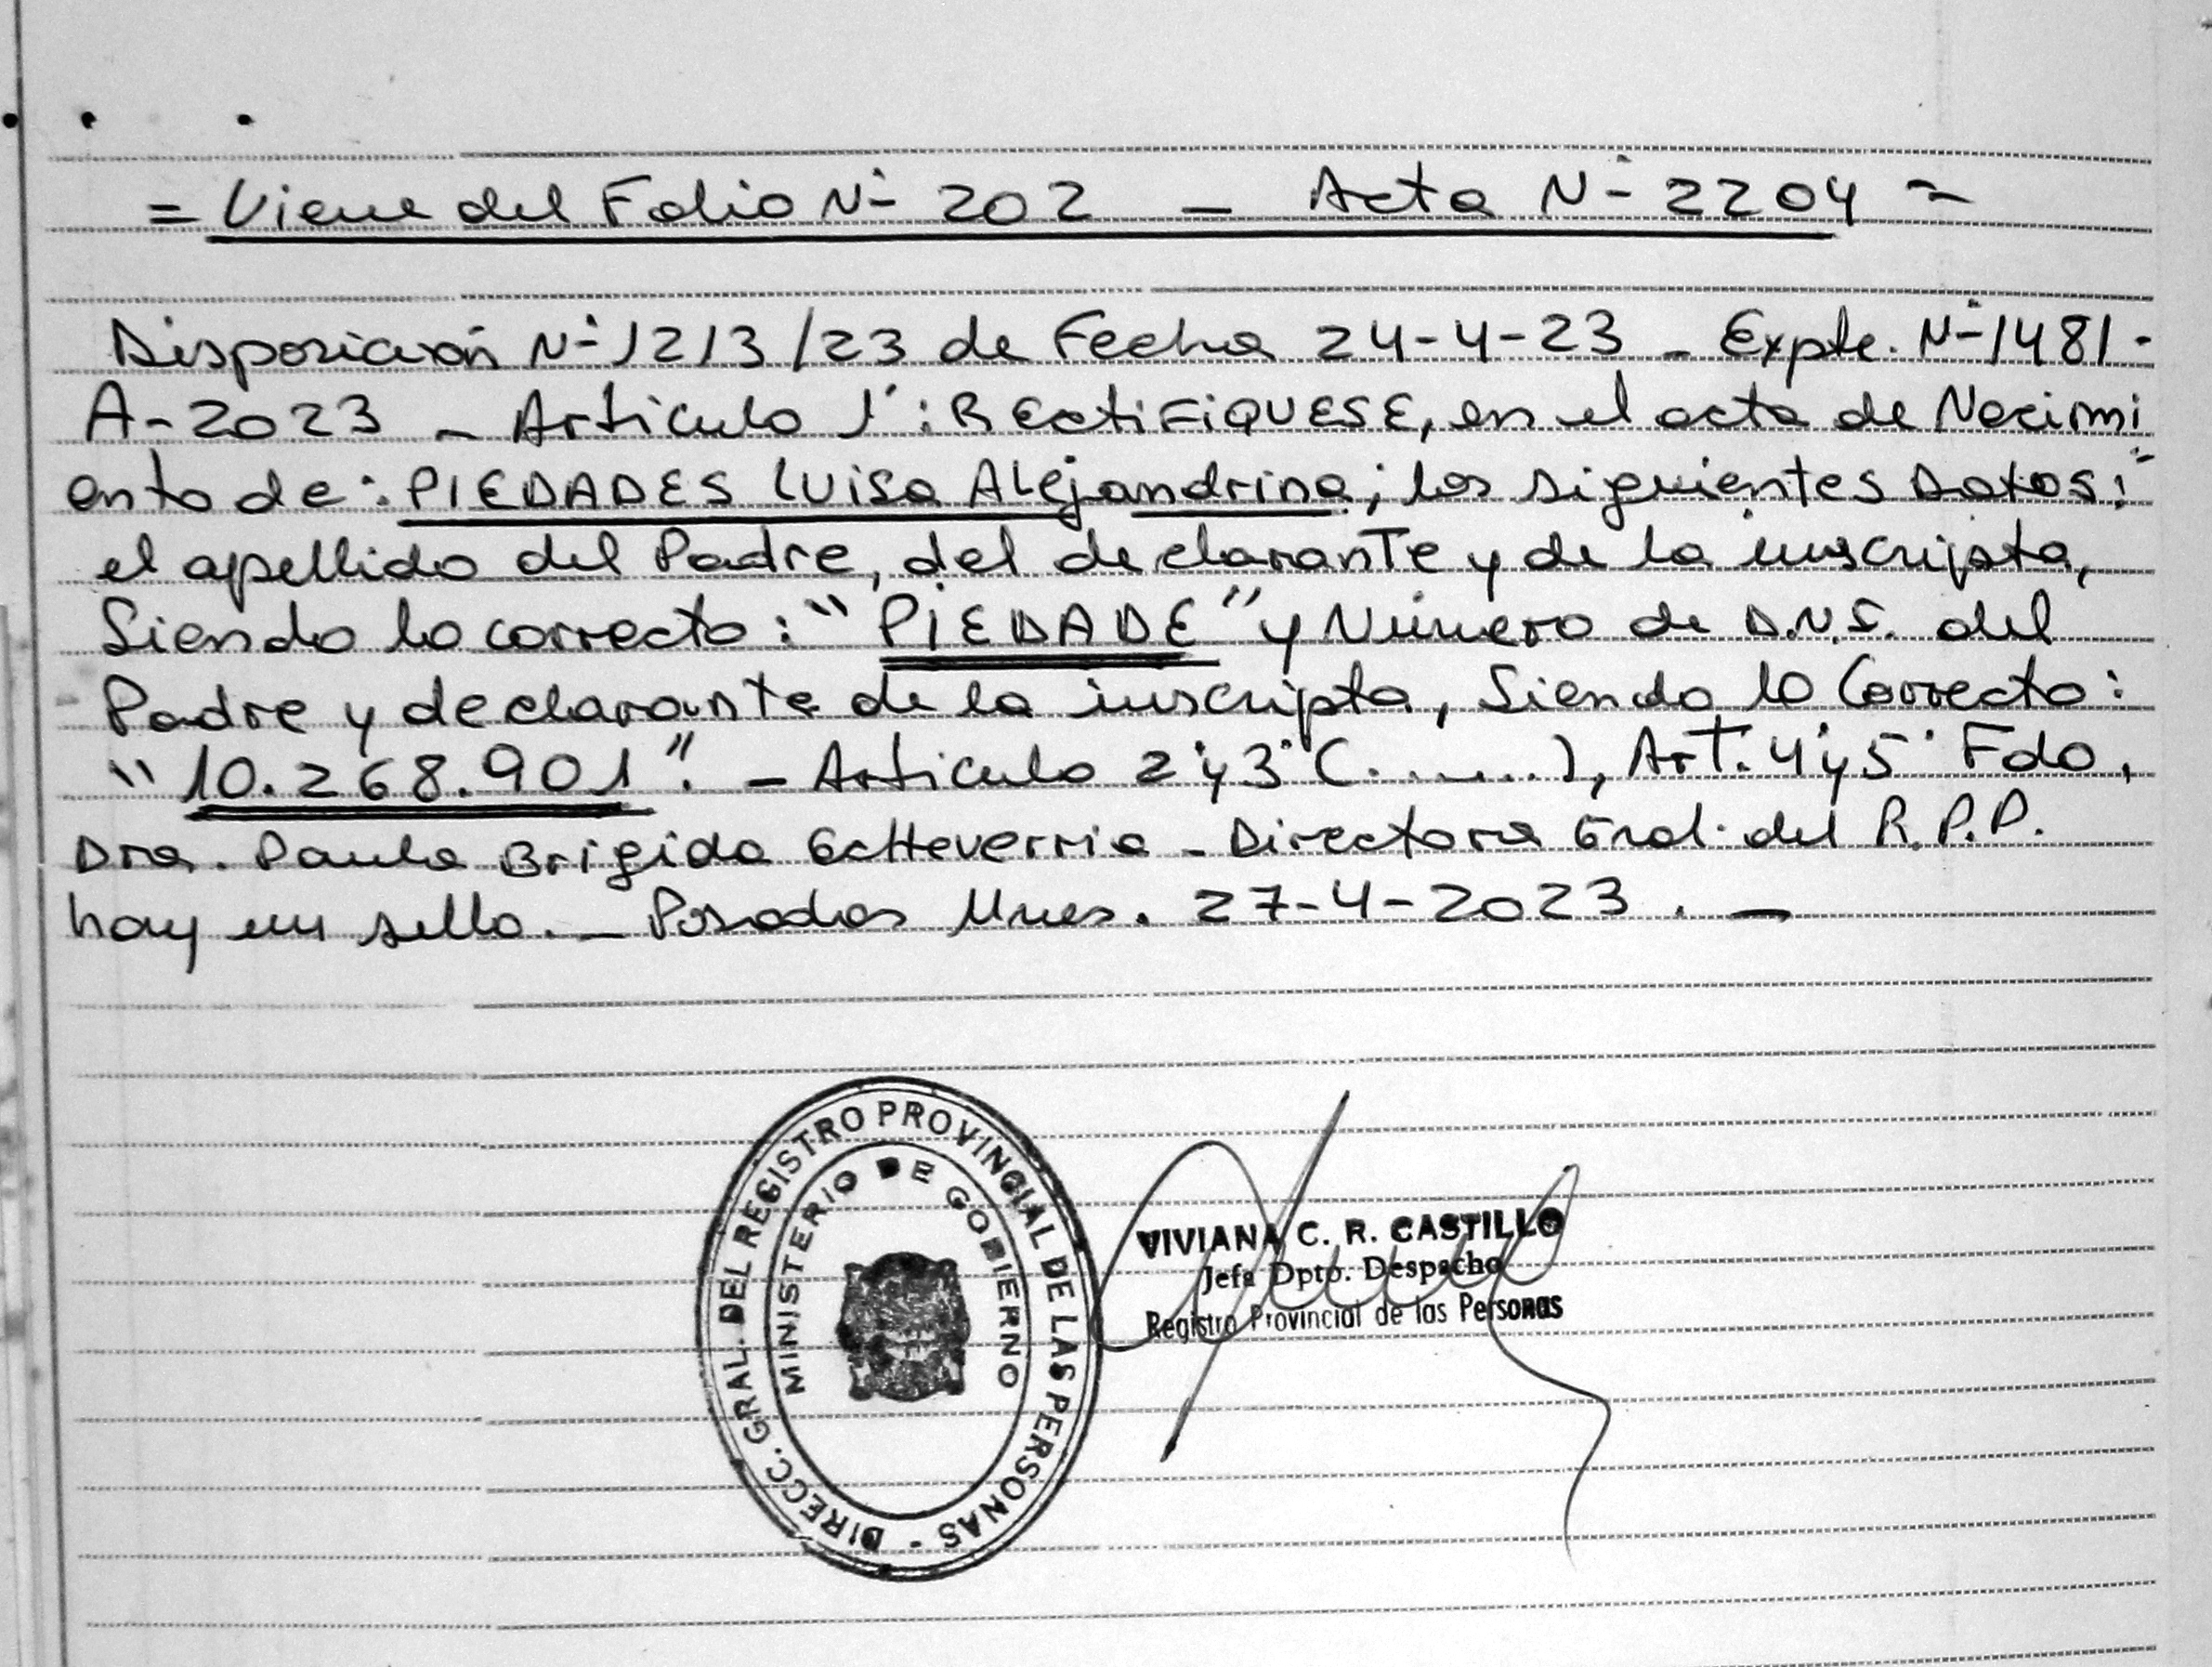 = Viene del Folio N° 202 — Acta N° 2204 =
Disposición N° 1213/23 de Fecha 24-4-23 — Expte. N° 1481-
A-2023 — Articulo 1°: RECTIFIQUESE, en el acta de Nacimi
ento de: PIEDADES LUISA Alejandrina; los siguientes Datos:
el apellido del Padre, del declarante y de la inscripta,
Siendo lo correcto: "PIEDADE" y Número de D.N.I. del
Padre y declarante de la inscripta, Siendo lo Correcto:
"10.268.901". — Articulo 2° y 3° (.......), Art. 4° y 5° Fdo,
Dra. Paula Brigida Echeverria — Directora Gral. del R.P.P.
hay un sello. — Posadas Mnes. 27-4-2023. —
DIRECC. GRAL. DEL REGISTRO PROVINCIAL DE LAS PERSONAS -
MINISTERIO DE GOBIERNO
VIVIANA C. R. CASTILLO
Jefa Dpto. Despacho
Registro Provincial de las Personas